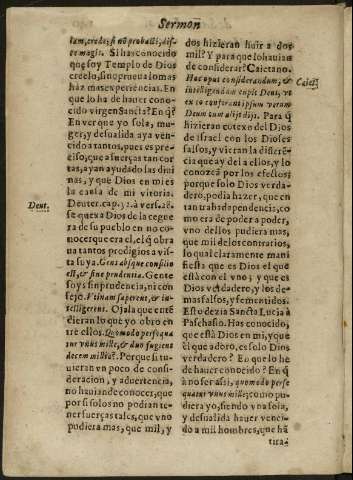 Sermon
tum, crede; si nō probasti, dis-
ce magis. Si has conocido
que soy Templo de Dios
creelo, si no prueualo mas
haz mas experiencias. En
que lo ha de hauer cono-
cido virgen Sancta? En q̃?
En ver que yo sola, mu-
ger, y desualida aya ven-
cido a tantos, pues es pre-
ciso, que a fuerças tan cor-
tas, ayan ayudado las diui-
nas, y que Dios en mi es
la causa de mi vitoria.
Deut.
Deuter. cap. 32. à vers. 28.
se quexa Dios de la cegue
ra de su pueblo en no co-
nocer que era el, el q̃ obra
ua tantos prodigios a vis-
ta suya. Gens absque consilio
est, & sine prudentia. Gente
soys sin prudencia, ni con
sejo. Vtinam saperent, & in-
telligerent. Ojala que enten
dieran lo que yo obro en
tre ellos. Quomodo persequa
tur vnus mille, & duo fugient
decem millia? Porque si tu-
uieran vn poco de consi-
deracion, y aduertencia,
no hauian de conocer, que
por si solos no podian te-
ner fuerças tales, que vno
pudiera mas, que mil, y
dos hizieran huir a dos
mil? Y para que lo hauian
de considerar? Caietano.
Caiet.
Hac opus considerandum, &
intelligendum cupit Deus, vt
ex eo conferant ipsum verum
Deum cum alijs dijs. Para q̃
hizieran cotexo del Dios
de Israel con los Dioses
falsos, y vieran la diferē-
cia que ay del a ellos, y lo
conozcã por los efectos;
porque solo Dios verda-
dero, podia hazer, que en
tan trabada pendencia, co
mo era de poder a poder,
vno dellos pudiera mas,
que mil de los contrarios,
lo qual claramente mani
fiesta que es Dios el que
està con el vno; y que es
Dios verdadero, y los de-
mas falsos, y fementidos.
Esto dezia Sancta Lucia à
Paschasio. Has conocido,
que està Dios en mi, y que
èl que adoro, es solo Dios
verdadero? En que lo he
de hauer conocido? En q̃
à no ser assi, quomodo perse
quatur vnus mille; como pu-
diera yo, siendo vna sola,
y desualida hauer venci-
do a mil hombres, que hã
tira-